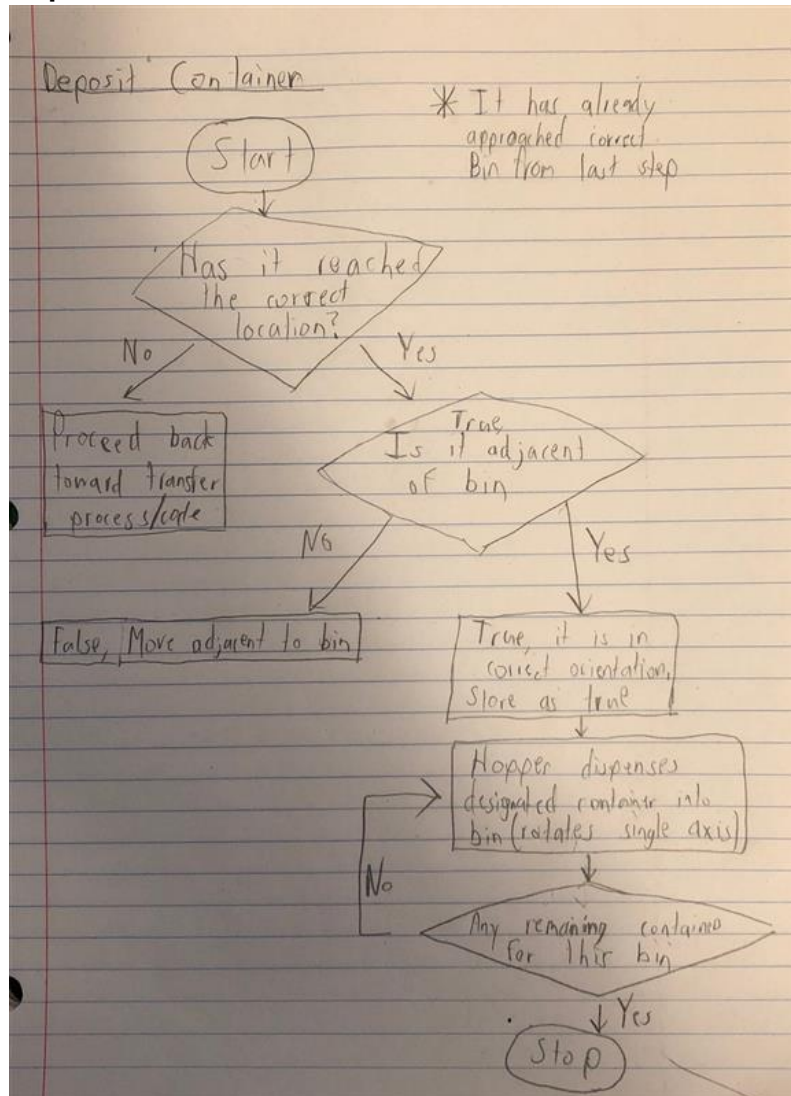 Deposit Container
* It has already
approached correct
Bin from last step
Start
Has it reached
the correct
location?
No
Yes
Proceed back
toward transfer
process/code
True,
Is it adjacent
of bin
No
Yes
False, Move adjacent to bin
True, it is in
correct orientation,
Store as true
Hopper dispenses
designated container into
bin (rotates single axis)
No
Any remaining
for this bin
Yes
Stop